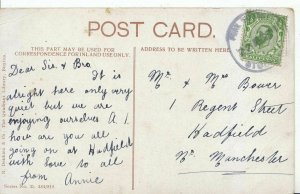 POST CARD.
THIS PART MAY BE USED FOR
CORRESPONDENCE FOR INLAND USE ONLY.
ADDRESS TO BE WRITTEN HERE
Dear Sis & Bro.
It is
alright here only very
quiet but we are
enjoying ourselves A 1.
how are you all
going on at Hadfield
with love to all
from Annie
Mr & Mrs Bower
1 Regent Street
Hadfield
Nr. Manchester